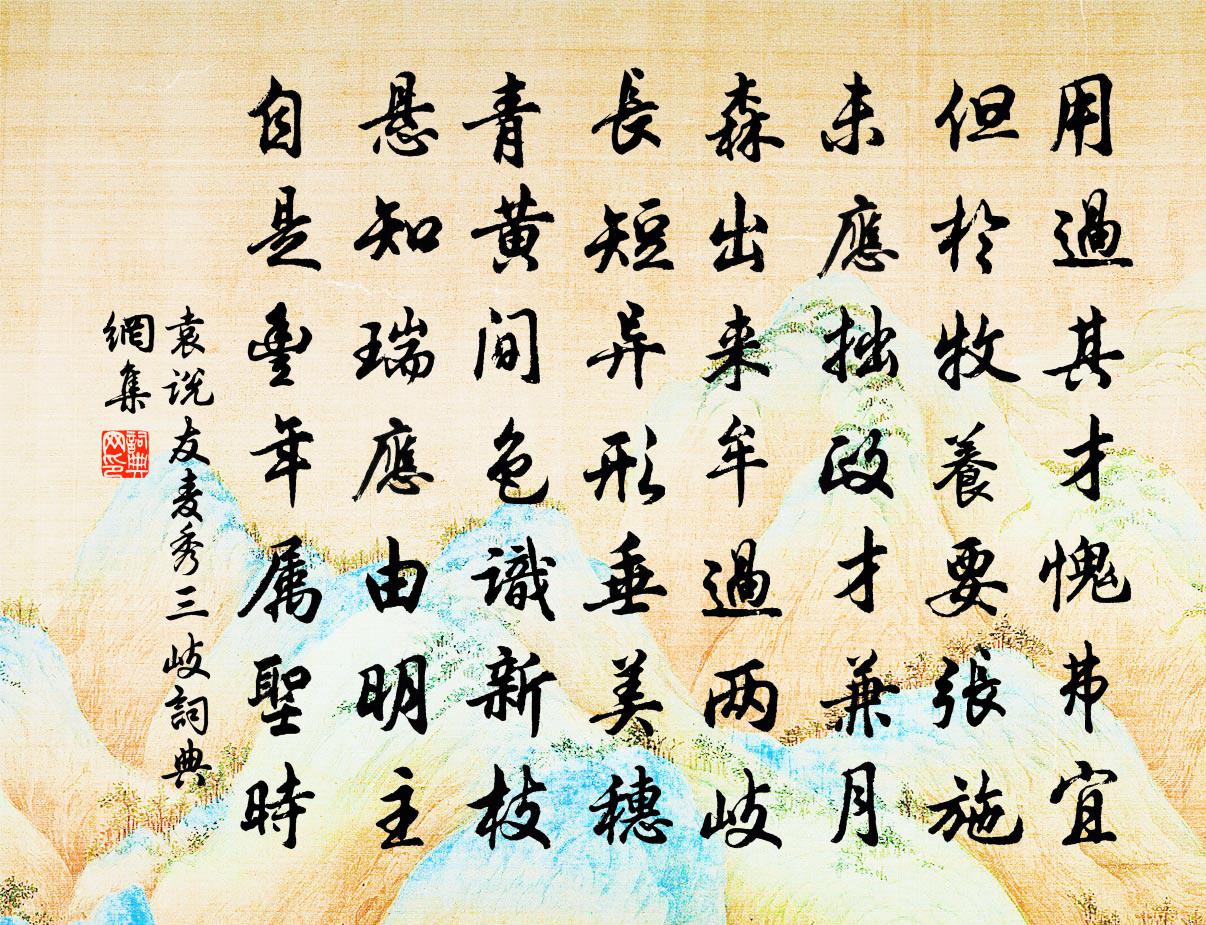 用過其才愧弗宜
但於牧養要張施
未應拙政才兼月
森出來牟過两岐
長短异形垂美穗
青黄間色識新枝
悬知瑞應由明主
自是豊年属聖時
袁説友麦秀三岐詞典
網集
詞典
网印